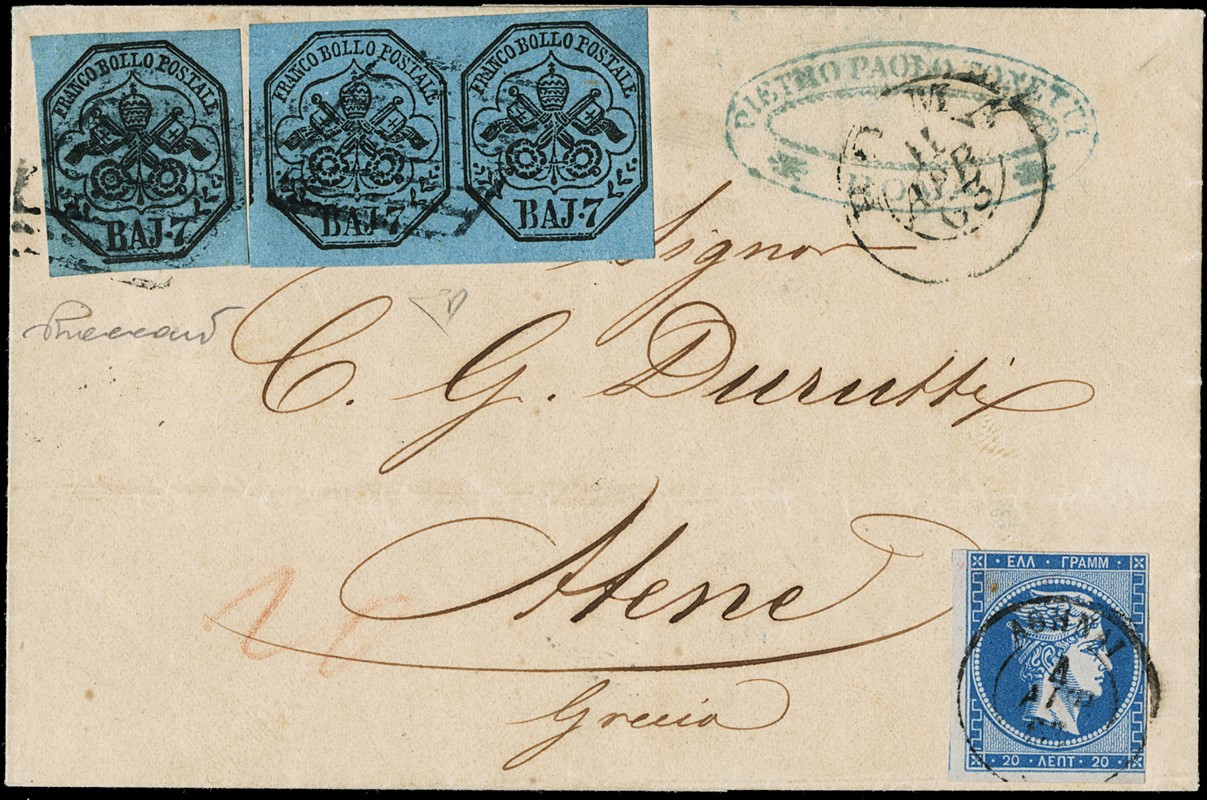 FRANCO BOLLO POSTALE
BAJ·7
FRANCO BOLLO POSTALE
BAJ·7
FRANCO BOLLO POSTALE
BAJ·7
PIETRO PAOLO
ROMA
ROMA
11
APR
63
Signor
C. G. Durutti
Atene
Grecia
ΕΛΛ · ΓΡΑΜΜ
ΑΘΗΝΑΙ
20 ΛΕΠΤ · 20